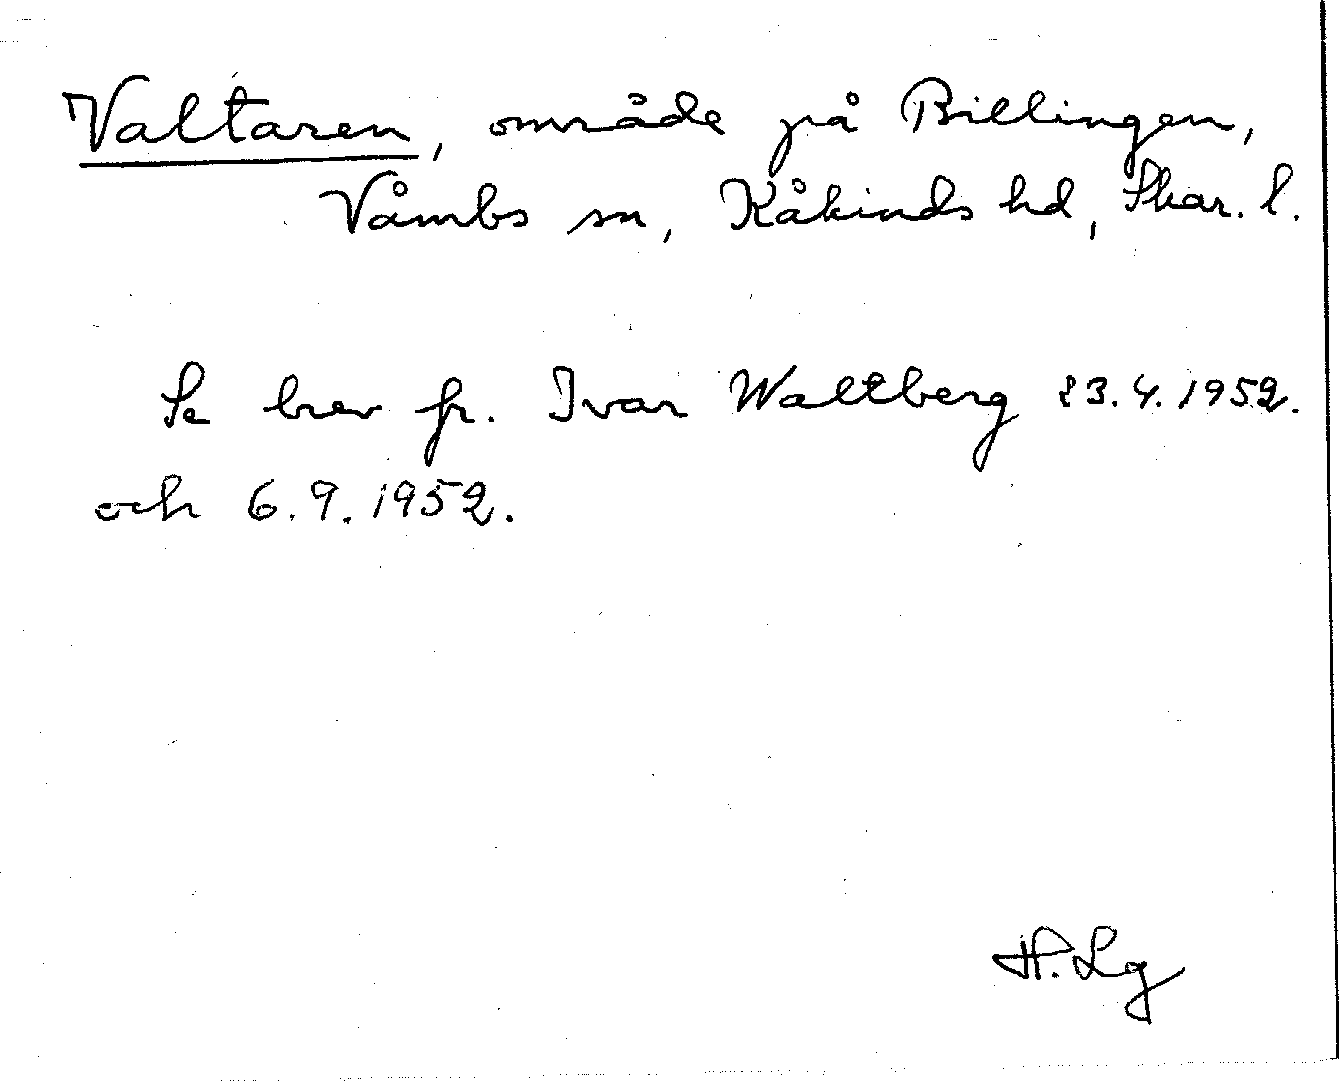 Valtaren, område på Billingen,
Våmbs sn, Kåkinds hd, Skar. l.
Se brev fr. Ivar Waltberg 23.4.1952.
och 6.9.1952.
H. Lg